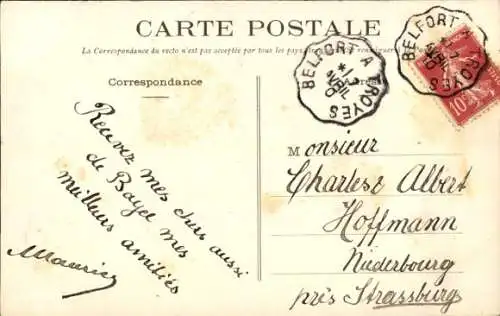 CARTE POSTALE
La Correspondance du recto n'est pas acceptée par tous les pays
Correspondance
BELFORT A TROYES
BELFORT A TROYES
10
Recevez mes chers aussi
de Bayel mes
meilleurs amitiés
Maurice
Monsieur
Charles & Albert
Hoffmann
Niederbourg
près Strassburg